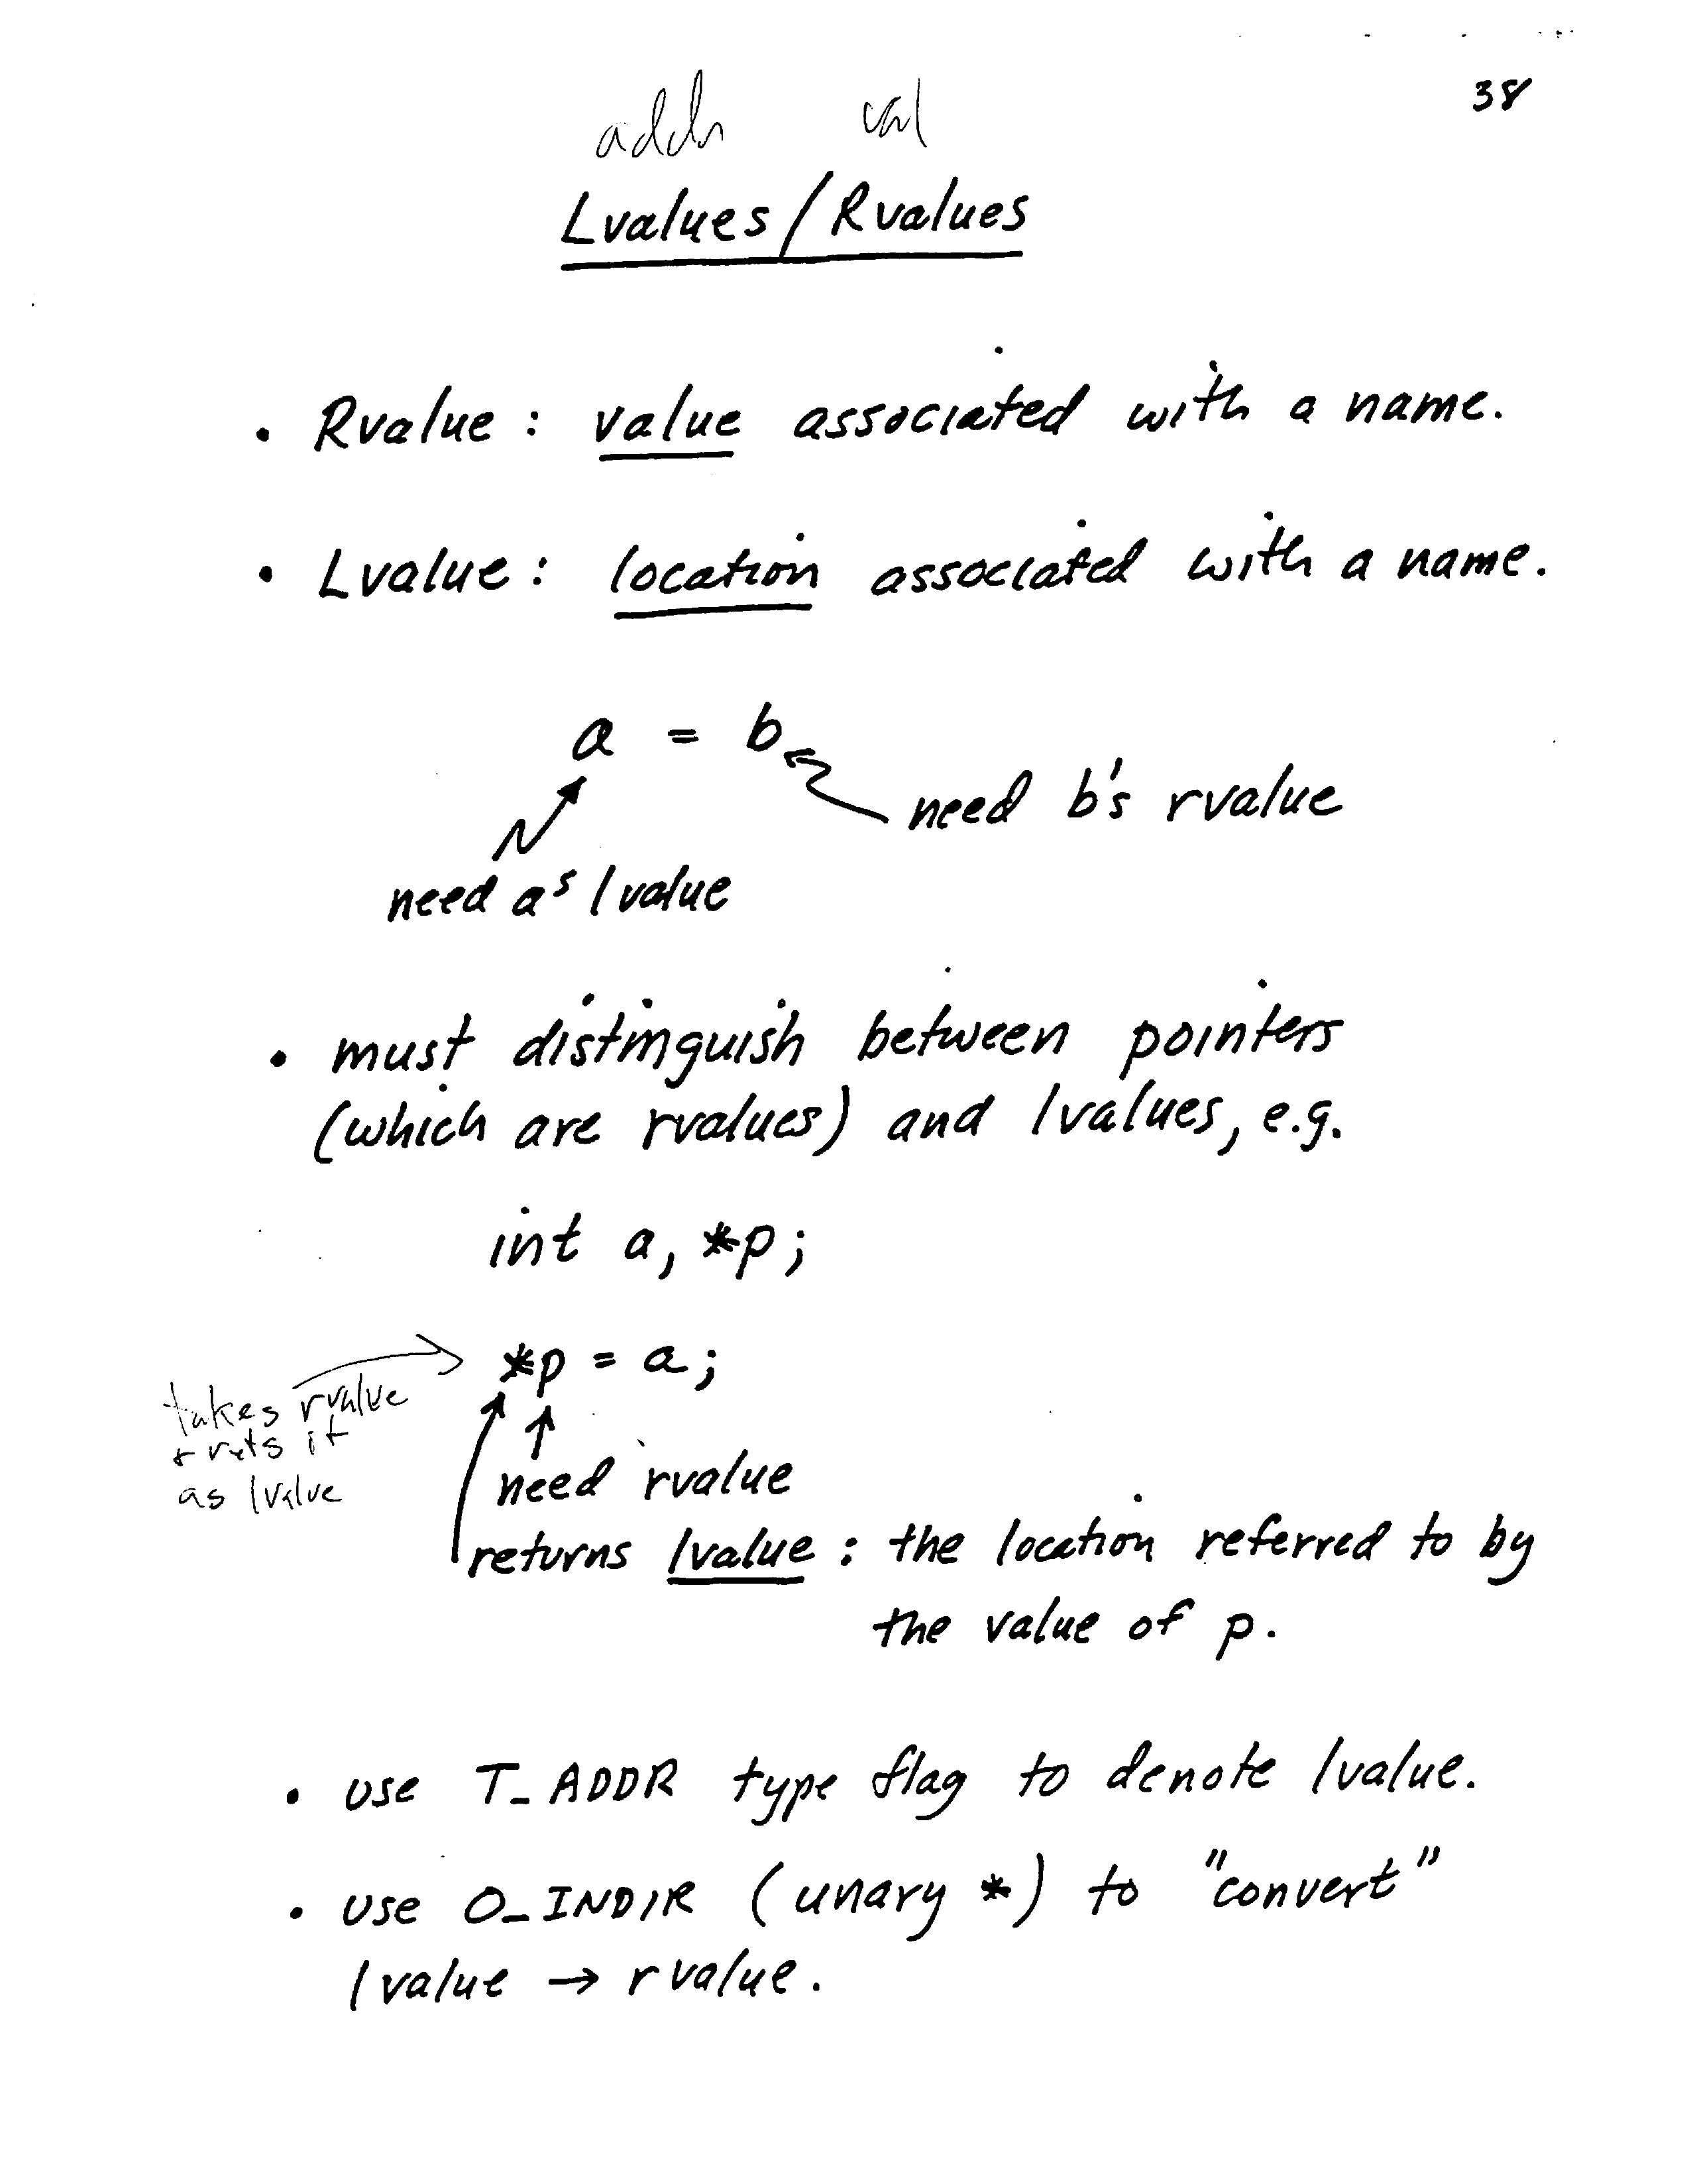 38
addr val
Lvalues/Rvalues
• Rvalue: value associated with a name.
• Lvalue: location associated with a name.
a = b
need b's rvalue
need a's lvalue
• must distinguish between pointers
(which are rvalues) and lvalues, e.g.
int a, *p;
*p = a;
takes rvalue
+ rets it
as lvalue
need rvalue
returns lvalue: the location referred to by
the value of p.
• use T_ADDR type flag to denote lvalue.
• use O_INDIR (unary *) to "convert"
lvalue → rvalue.